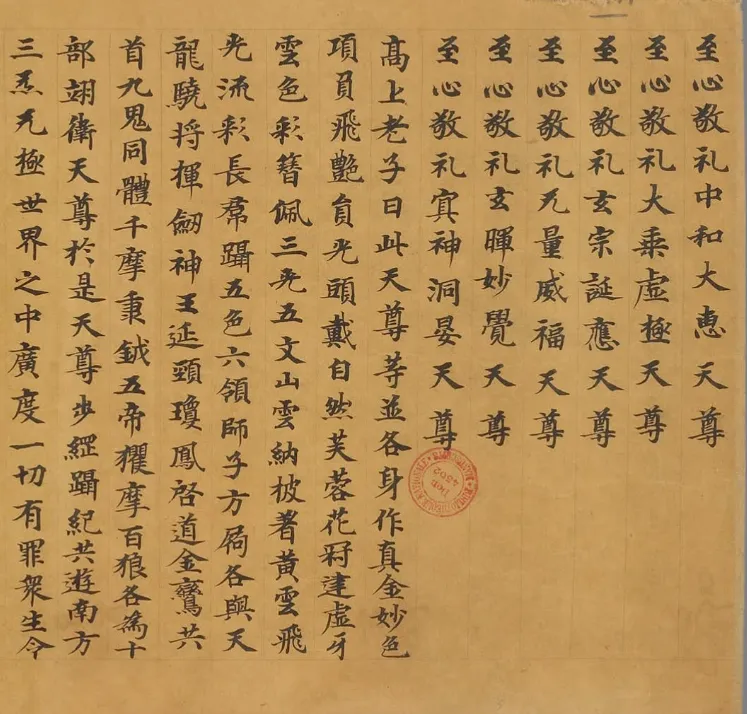 至心敬礼中和大惠天尊
至心敬礼大乘虛極天尊
至心敬礼玄宗誕應天尊
至心敬礼无量威福天尊
至心敬礼玄暉妙覺天尊
至心敬礼冥神洞晏天尊
高上老子曰此天尊等並各身作真金妙色
項負飛艷貟光頭戴自然芙蓉花冠建虛牙
雲色彩簪佩三光五文山雲納披著黃雲飛
光流彩長帬躡五色六領師子方扃各與天
龍驍將揮劔神王延頸瓊鳳啓道金鸞共
首九鬼同體千摩秉鉞五帝玃摩百狼各為十
部翊衛天尊於是天尊步綱躡紀共遊南方
三炁无極世界之中廣度一切有罪衆生令